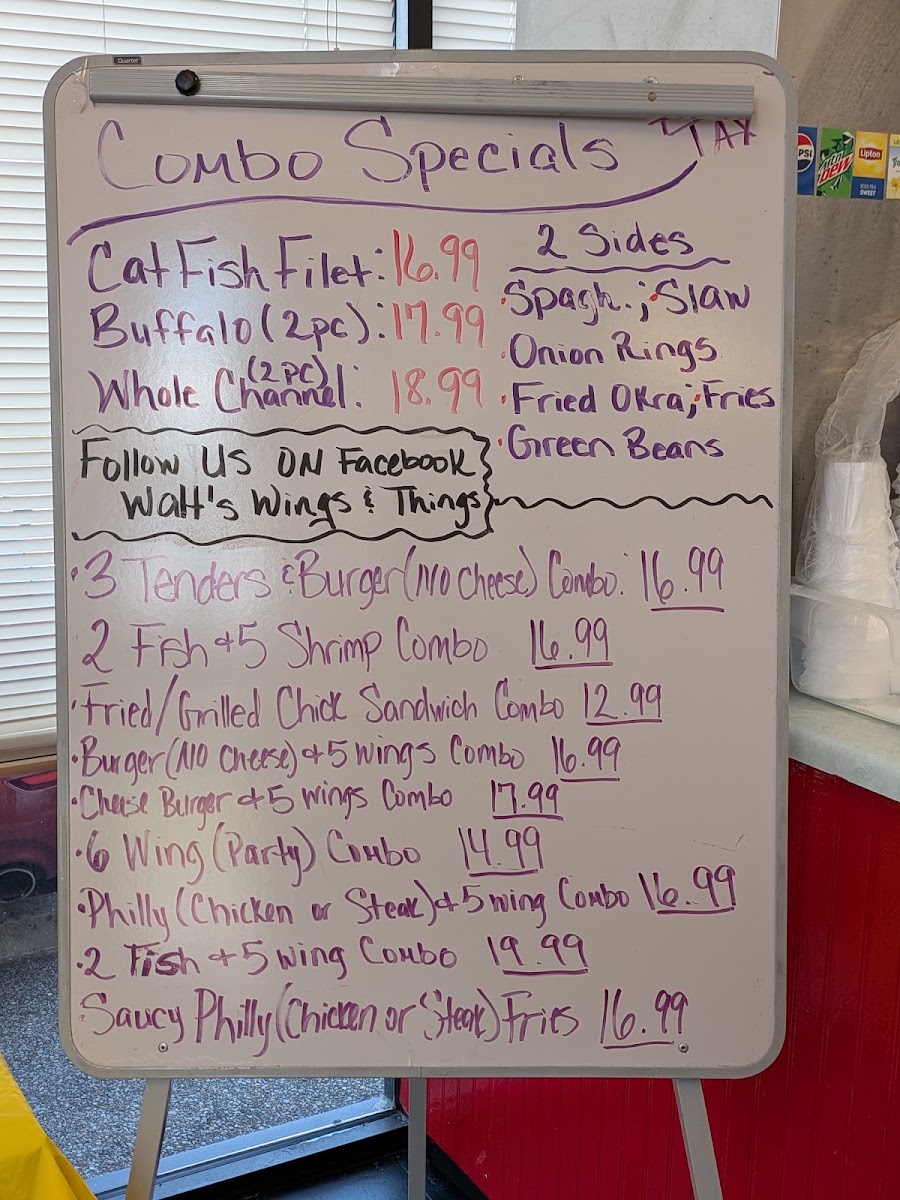 Quartet
Combo Specials + TAX
CatFish Filet: 16.99
Buffalo (2pc): 17.99
Whole Channel (2PC): 18.99
2 Sides
Spagh.; Slaw
Onion Rings
Fried Okra; Fries
Green Beans
Follow Us ON Facebook
Walt's Wings & Things
3 Tenders & Burger (NO Cheese) Combo: 16.99
2 Fish + 5 Shrimp Combo 16.99
Fried/Grilled Chick Sandwich Combo 12.99
Burger (NO Cheese) + 5 Wings Combo 16.99
Cheese Burger + 5 Wings Combo 17.99
6 Wing (Party) Combo 14.99
Philly (Chicken or Steak) + 5 wing Combo 16.99
2 Fish + 5 Wing Combo 19.99
Saucy Philly (Chicken or Steak) Fries 16.99
PSI
Mtn Dew
Lipton
ICED TEA
SWEET